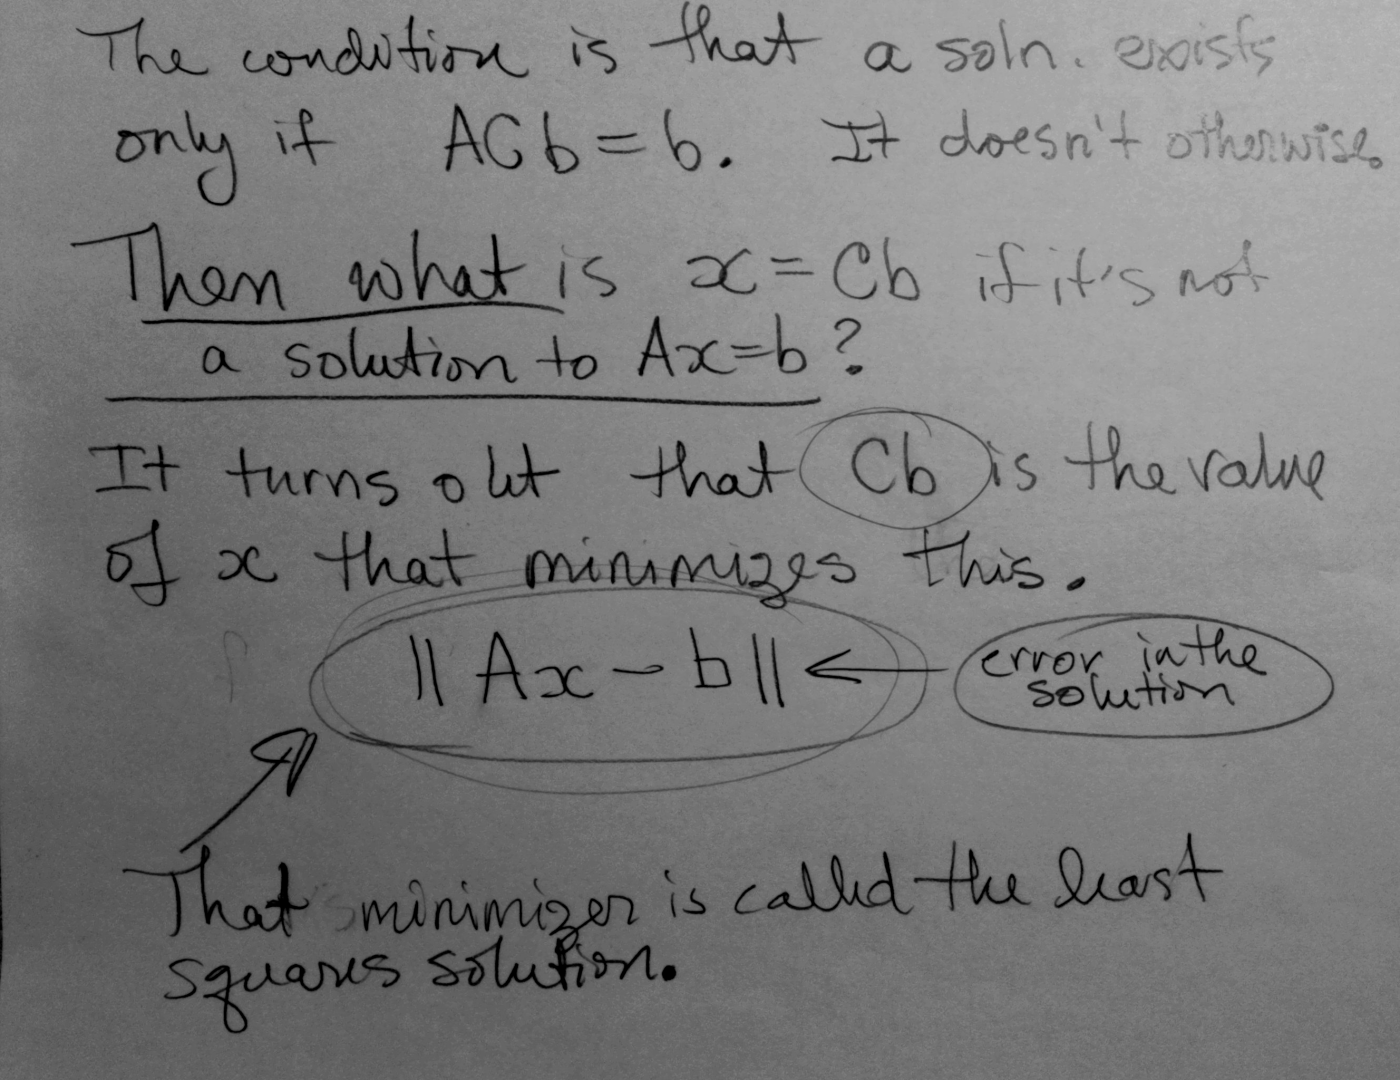 The condition is that a soln. exists
only if ACb = b. It doesn't otherwise.
Then what is x = Cb if it's not
a solution to Ax=b?
It turns out that Cb is the value
of x that minimizes this.
|| Ax - b || ← error in the
solution
That minimizer is called the least
squares solution.